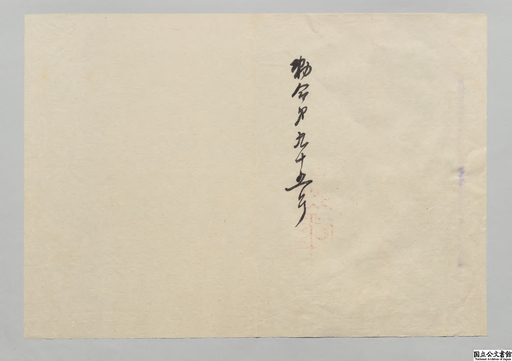 勅令第九十五号
国立公文書館
National Archives of Japan